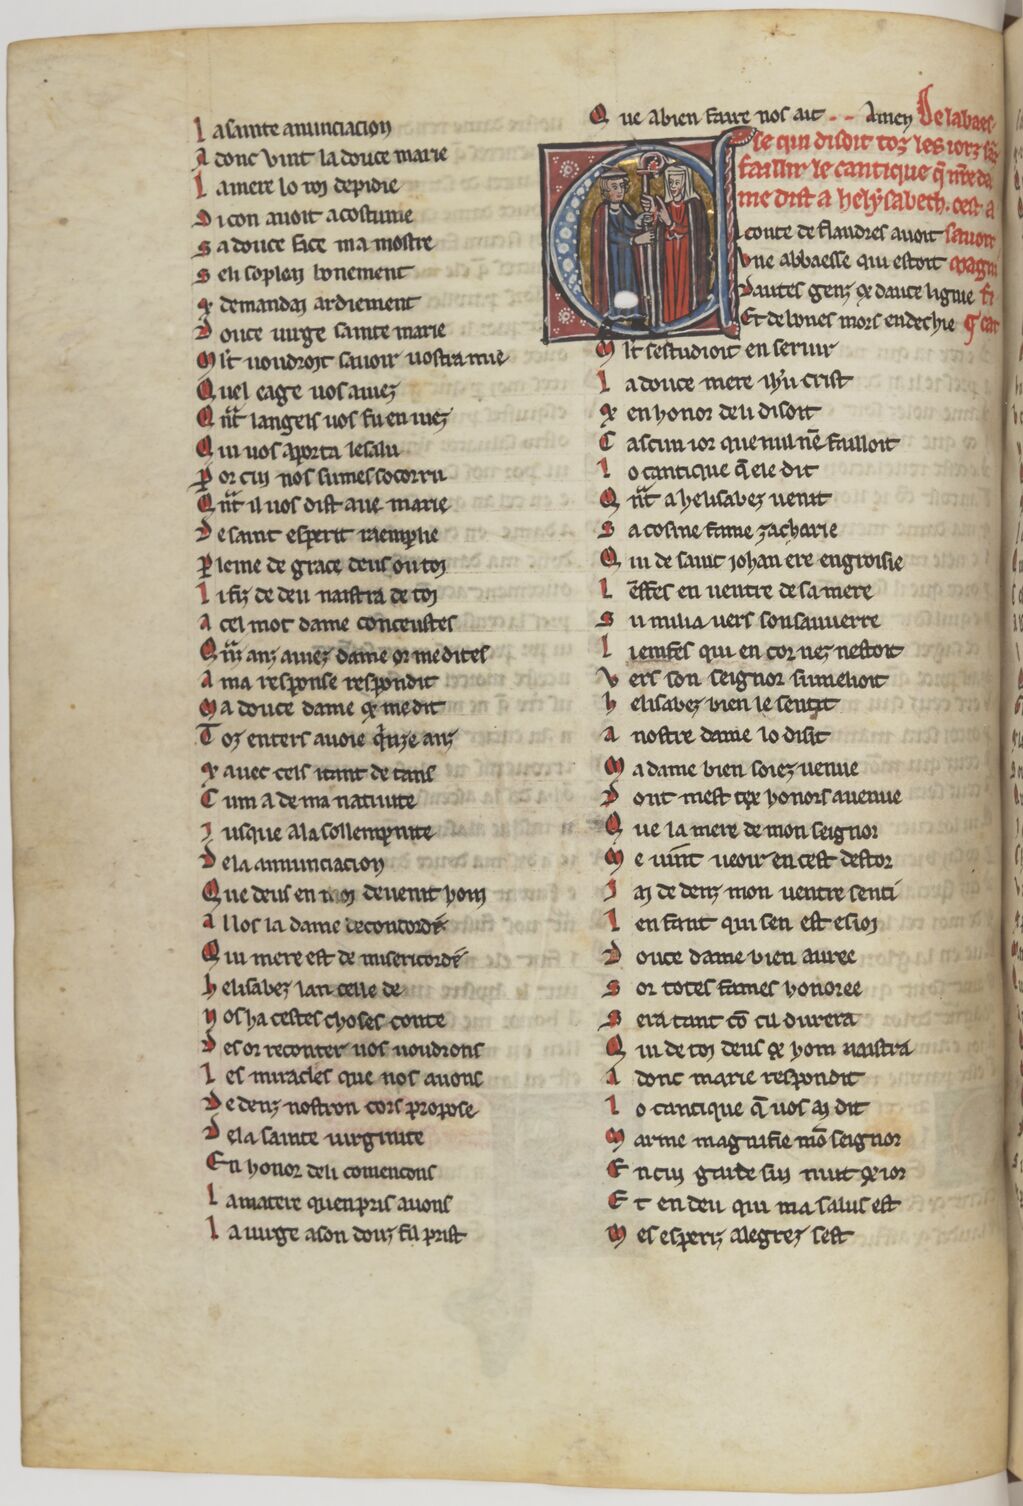 L a sainte anunciacion
A donc vint la douce marie
L a mere lo roi de pidie
Si con avoit acostume
S a douce face ma mostre
S e li soplei bonement
⁊ demandai ardiement
D ouce virge sainte marie
M lt voudroit savoir vostramie
Q uel eage vos aviez
Q nt langels vos fu enviez
Q ui vos aporta le salu
P or cui nos sumes socorru
Q nt il vos dist ave marie
D e saint esperit raemplie
P leine de grace deus ou toi
L i fiz de deu naistra de toi
A cel mot dame conceustes
Q nz anz aviez dame or me dites
A ma response respondit
M a douce dame ⁊ me dit
T oz enters avoie qinze anz
⁊ avec cels itant de tans
C um a de ma nativite
J usque a la sollempnite
D e la annunciacion
Que deus en moi devenit hom
A llos la dame de concorde
Q ui mere est de misericorde
h elisabez lan celle de
N os ha cestes choses conte
D es or reconter vos voudrons
L es miracles que nos avons
D e denz nostron cors propose
D e la sainte virginite
En honor de li comencons
L a matere quenpris avons
L a virge a son douz fil prist
Q ue a bien faire nos ait - - Amen
De labaes
se qui disoit toz les iorz sanz
faillir le cantique q nre da
me dist a helysabeth. cest a
savoir
magni
fi
cat
Q conte de flandres avoit
Une abbaesse qui estoit
D autes genz ⁊ daute lignie
Et de bones mors endechie
M lt sestudioit en servir
L a douce mere ihu crist
⁊ en honor de li disoit
C ascun ior que nul nen failloit
L o cantique q ele dit
Q nt a helisabez venit
S a cosine fame zacharie
Q ui de saint johan ere engroisie
L enfes en ventre de sa mere
S umilia vers son sauverre
L i emfes qui encor nez nestoit
V ers son seignor sumelioit
h elisabez bien le sentit
A nostre dame lo disit
M a dame bien soiez venue
D ont mest tex honors avenue
Q ue la mere de mon seignor
M e vint veoir en cest destor
J ai de denz mon ventre senti
L enfant qui sen est esioi
D ouce dame bien auree
S or totes fames honoree
S era tant com cil durera
Q ui de toi deus ⁊ hom naistra
A donc marie respondit
L o cantique q vos ai dit
M arme magnifie mon seignor
E n cui gande sui nuit ⁊ ior
E t en deu qui ma salus est
M es esperiz alegrez sest